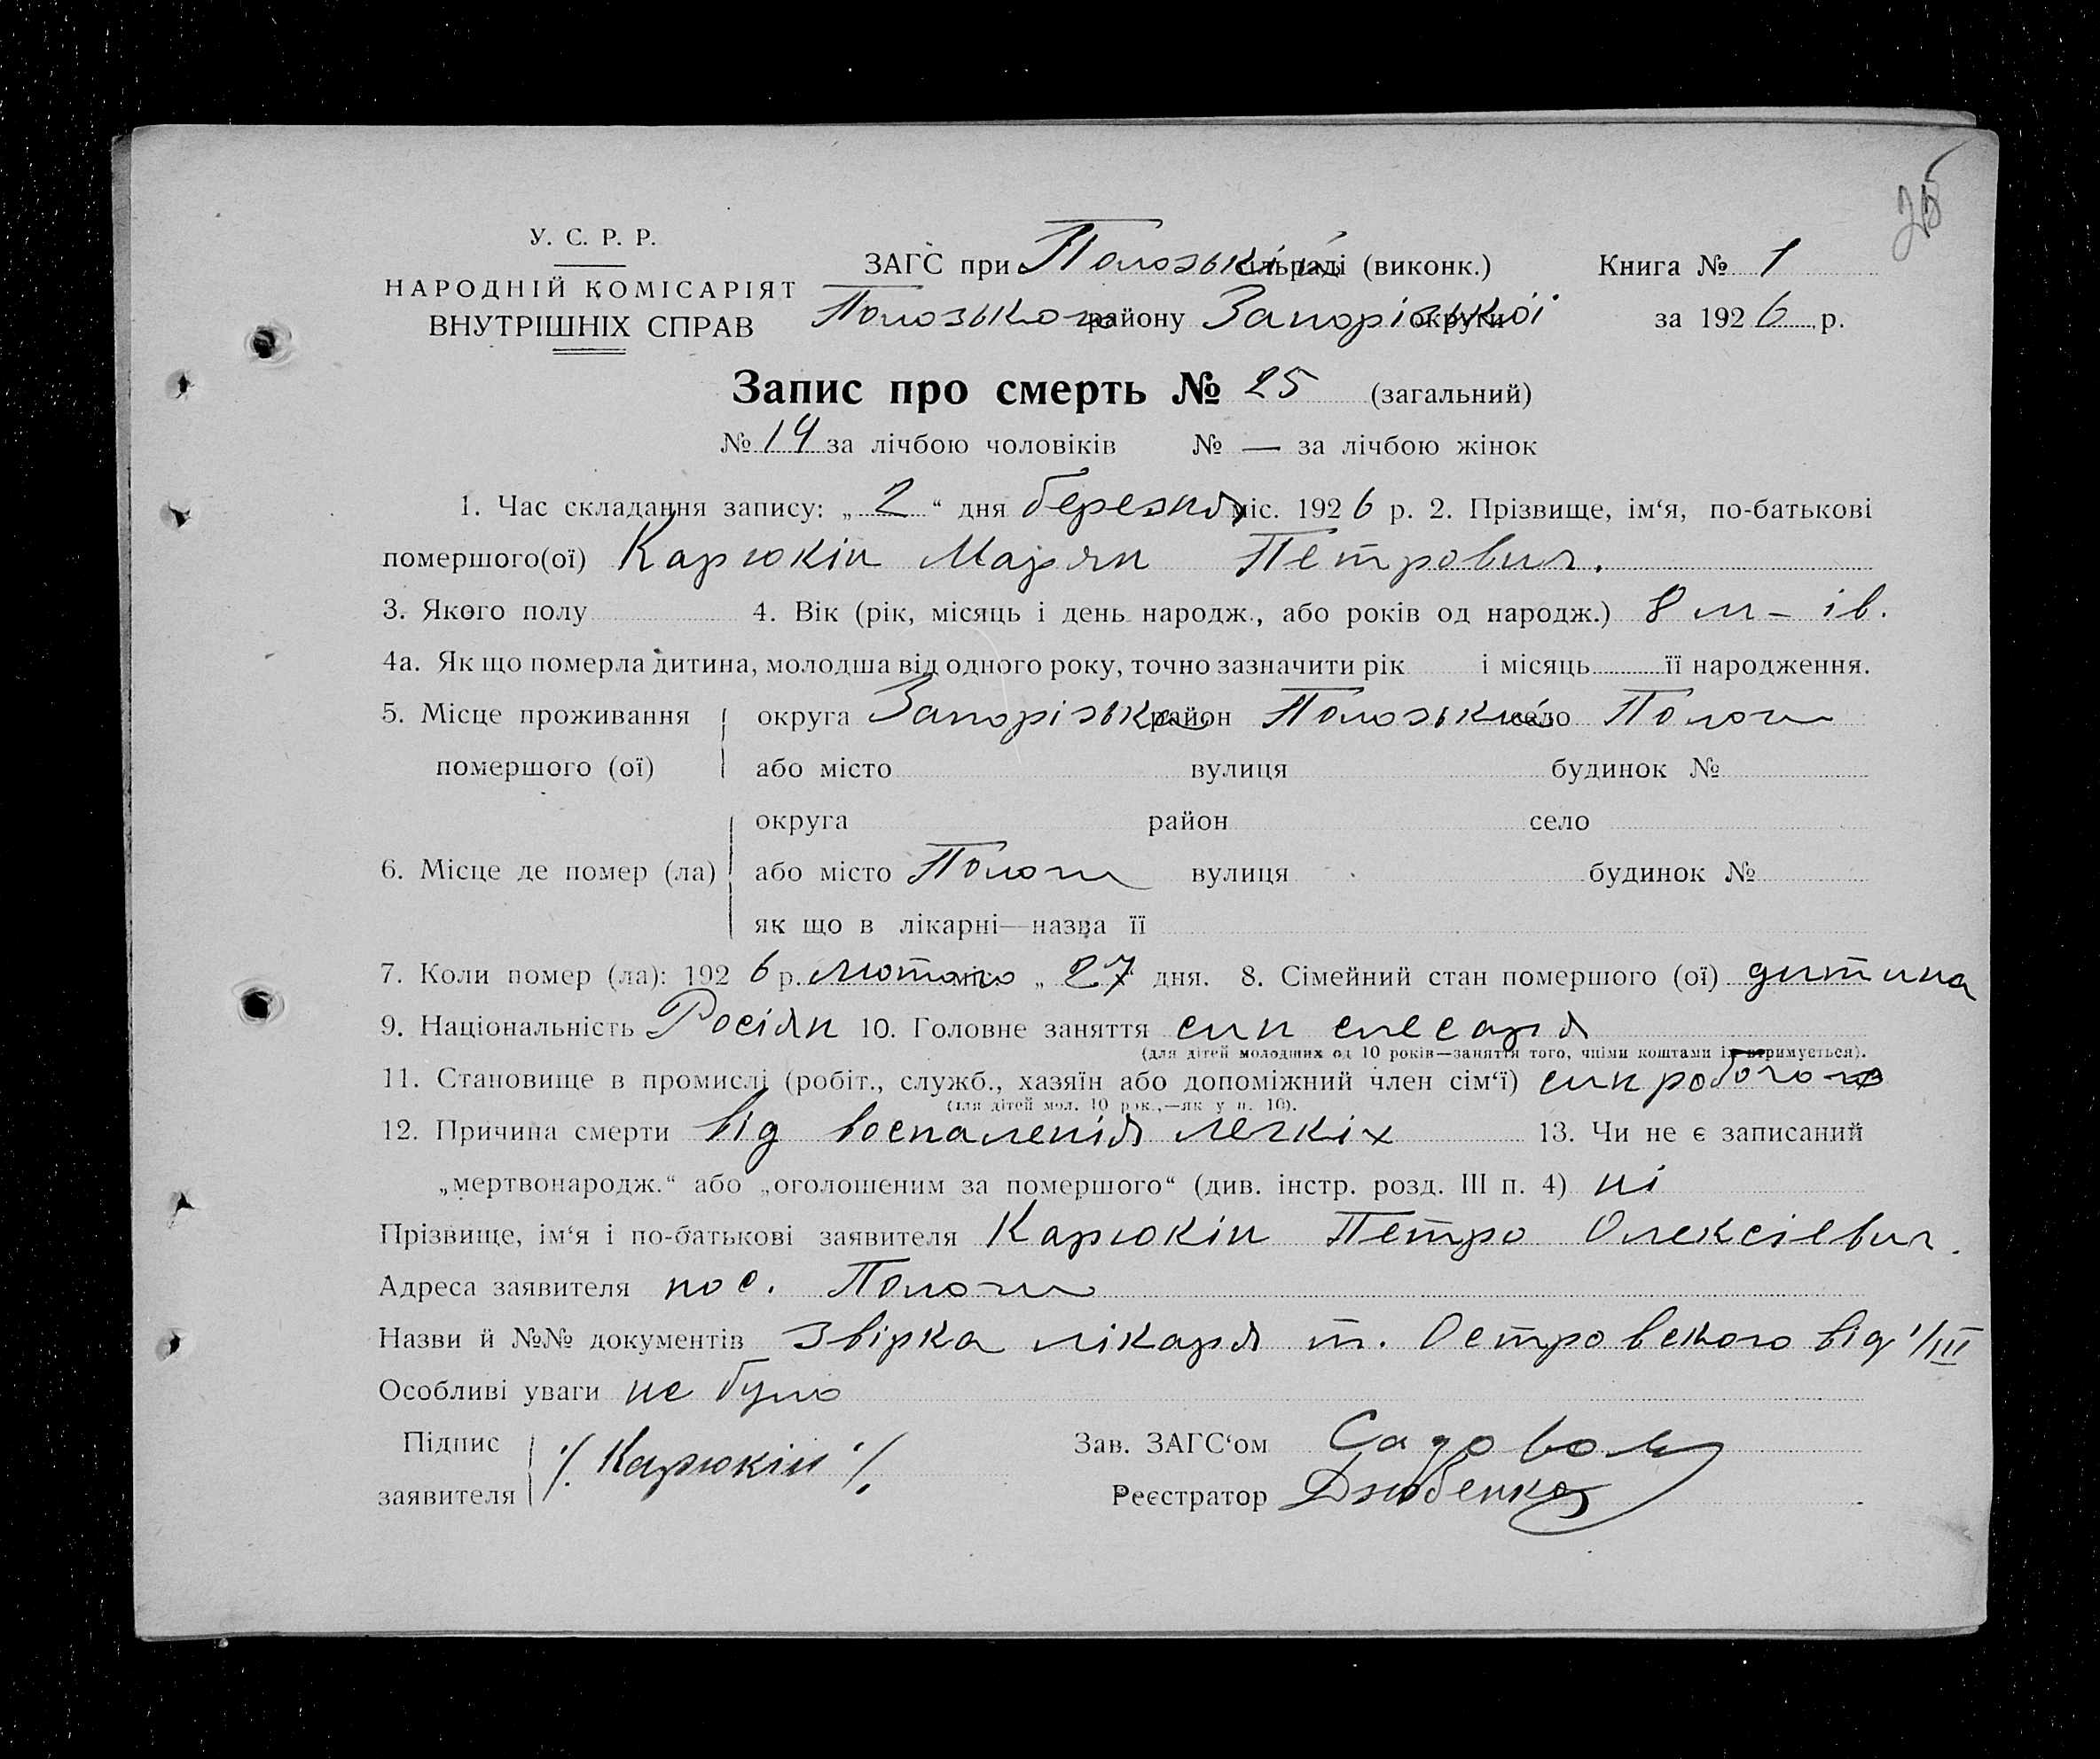 25
У. С. Р. Р.
НАРОДНІЙ КОМІСАРІЯТ
ВНУТРІШНІХ СПРАВ
ЗАГС при Пологській сільраді (виконк.) Книга № 1
Пологського району Запорізької округи за 1926 р.
Запис про смерть № 25 (загальний)
№ 14 за лічбою чоловіків № — за лічбою жінок
1. Час складання запису: „2“ дня березня міс. 1926 р. 2. Прізвище, ім‘я, по-батькові
помершого(ої) Карюкін Марян Петрович.
3. Якого полу 4. Вік (рік, місяць і день народж., або років од народж.) 8 м-ів.
4а. Як що померла дитина, молодша від одного року, точно зазначити рік і місяць її народження.
5. Місце проживання помершого (ої) округа Запорізька район Пологський село Пологи
або місто вулиця будинок №
округа район село
6. Місце де помер (ла) або місто Пологи вулиця будинок №
як що в лікарні—назва її
7. Коли помер (ла): 1926 р. лютого міс. „27“ дня. 8. Сімейний стан помершого (ої) дитина
9. Національність Росіян 10. Головне заняття син слесаря
(для дітей молодших од 10 років—заняття того, чиїми коштами їх втримується).
11. Становище в промислі (робіт., служб., хазяїн або допоміжний член сім‘ї) син робочого
(для дітей мол. 10 рок.,—як у п. 10).
12. Причина смерти від воспаленія легкіх 13. Чи не є записаний
„мертвонародж.“ або „оголошеним за помершого“ (див. інстр. розд. III п. 4) ні
Прізвище, ім‘я і по-батькові заявителя Карюкін Петро Олексієвич.
Адреса заявителя пос. Пологи
Назви й №№ документів Звірка лікаря т. Островського від 1/III
Особливі уваги не було
Підпис заявителя /. Карюкін /. Зав. ЗАГС‘ом
Реєстратор Дзюбенко